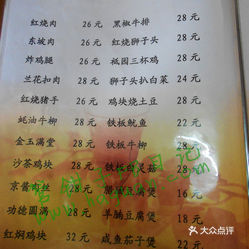 红烧肉 26元 黑椒牛排 28元
东坡肉 26元 红烧狮子头 28元
炸鸡腿 26元 祗园三杯鸡 28元
兰花扣肉 28元 狮子头扒白菜 24元
红烧猪子 26元 鸡块烧土豆 28元
蚝油牛柳 28元 铁板鱿鱼 22元
金玉满堂 28元 铁板牛柳
沙茶鸡块 28元 铁板
京酱肉丝 28元 豆腐煲 18元
功德圆满 28元 羊腩豆腐煲 18元
红焖鸡块 32元 咸鱼茄子煲 22元
大众点评